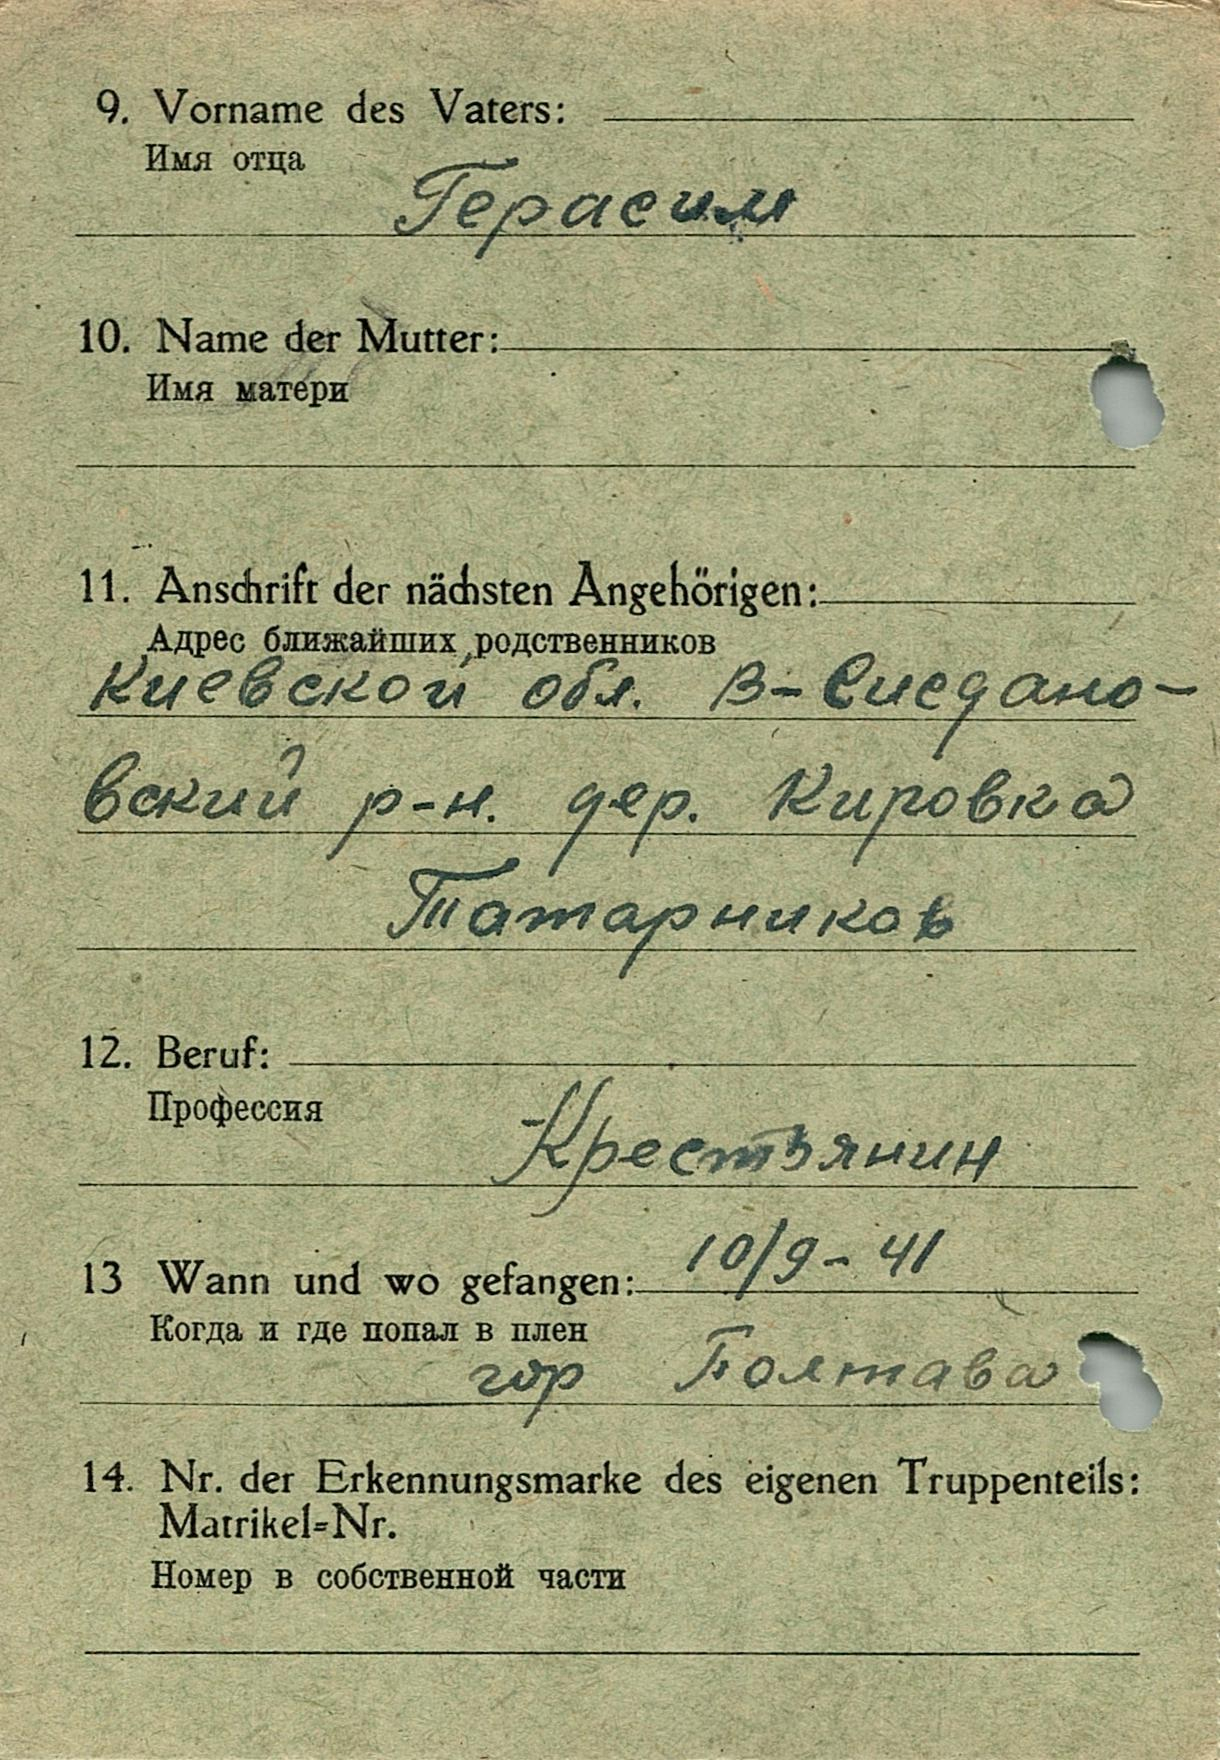 9. Vorname des Vaters:
Имя отца
Герасим
10. Name der Mutter:
Имя матери
11. Anschrift der nächsten Angehörigen:
Адрес ближайших родственников
Киевской обл. В-Сисдано-
вский р-н. дер. Кировка
Татарников
12. Beruf:
Профессия
Крестьянин
13 Wann und wo gefangen: 10/9-41
Когда и где попал в плен
гор Полтава
14. Nr. der Erkennungsmarke des eigenen Truppenteils:
Matrikel=Nr.
Номер в собственной части